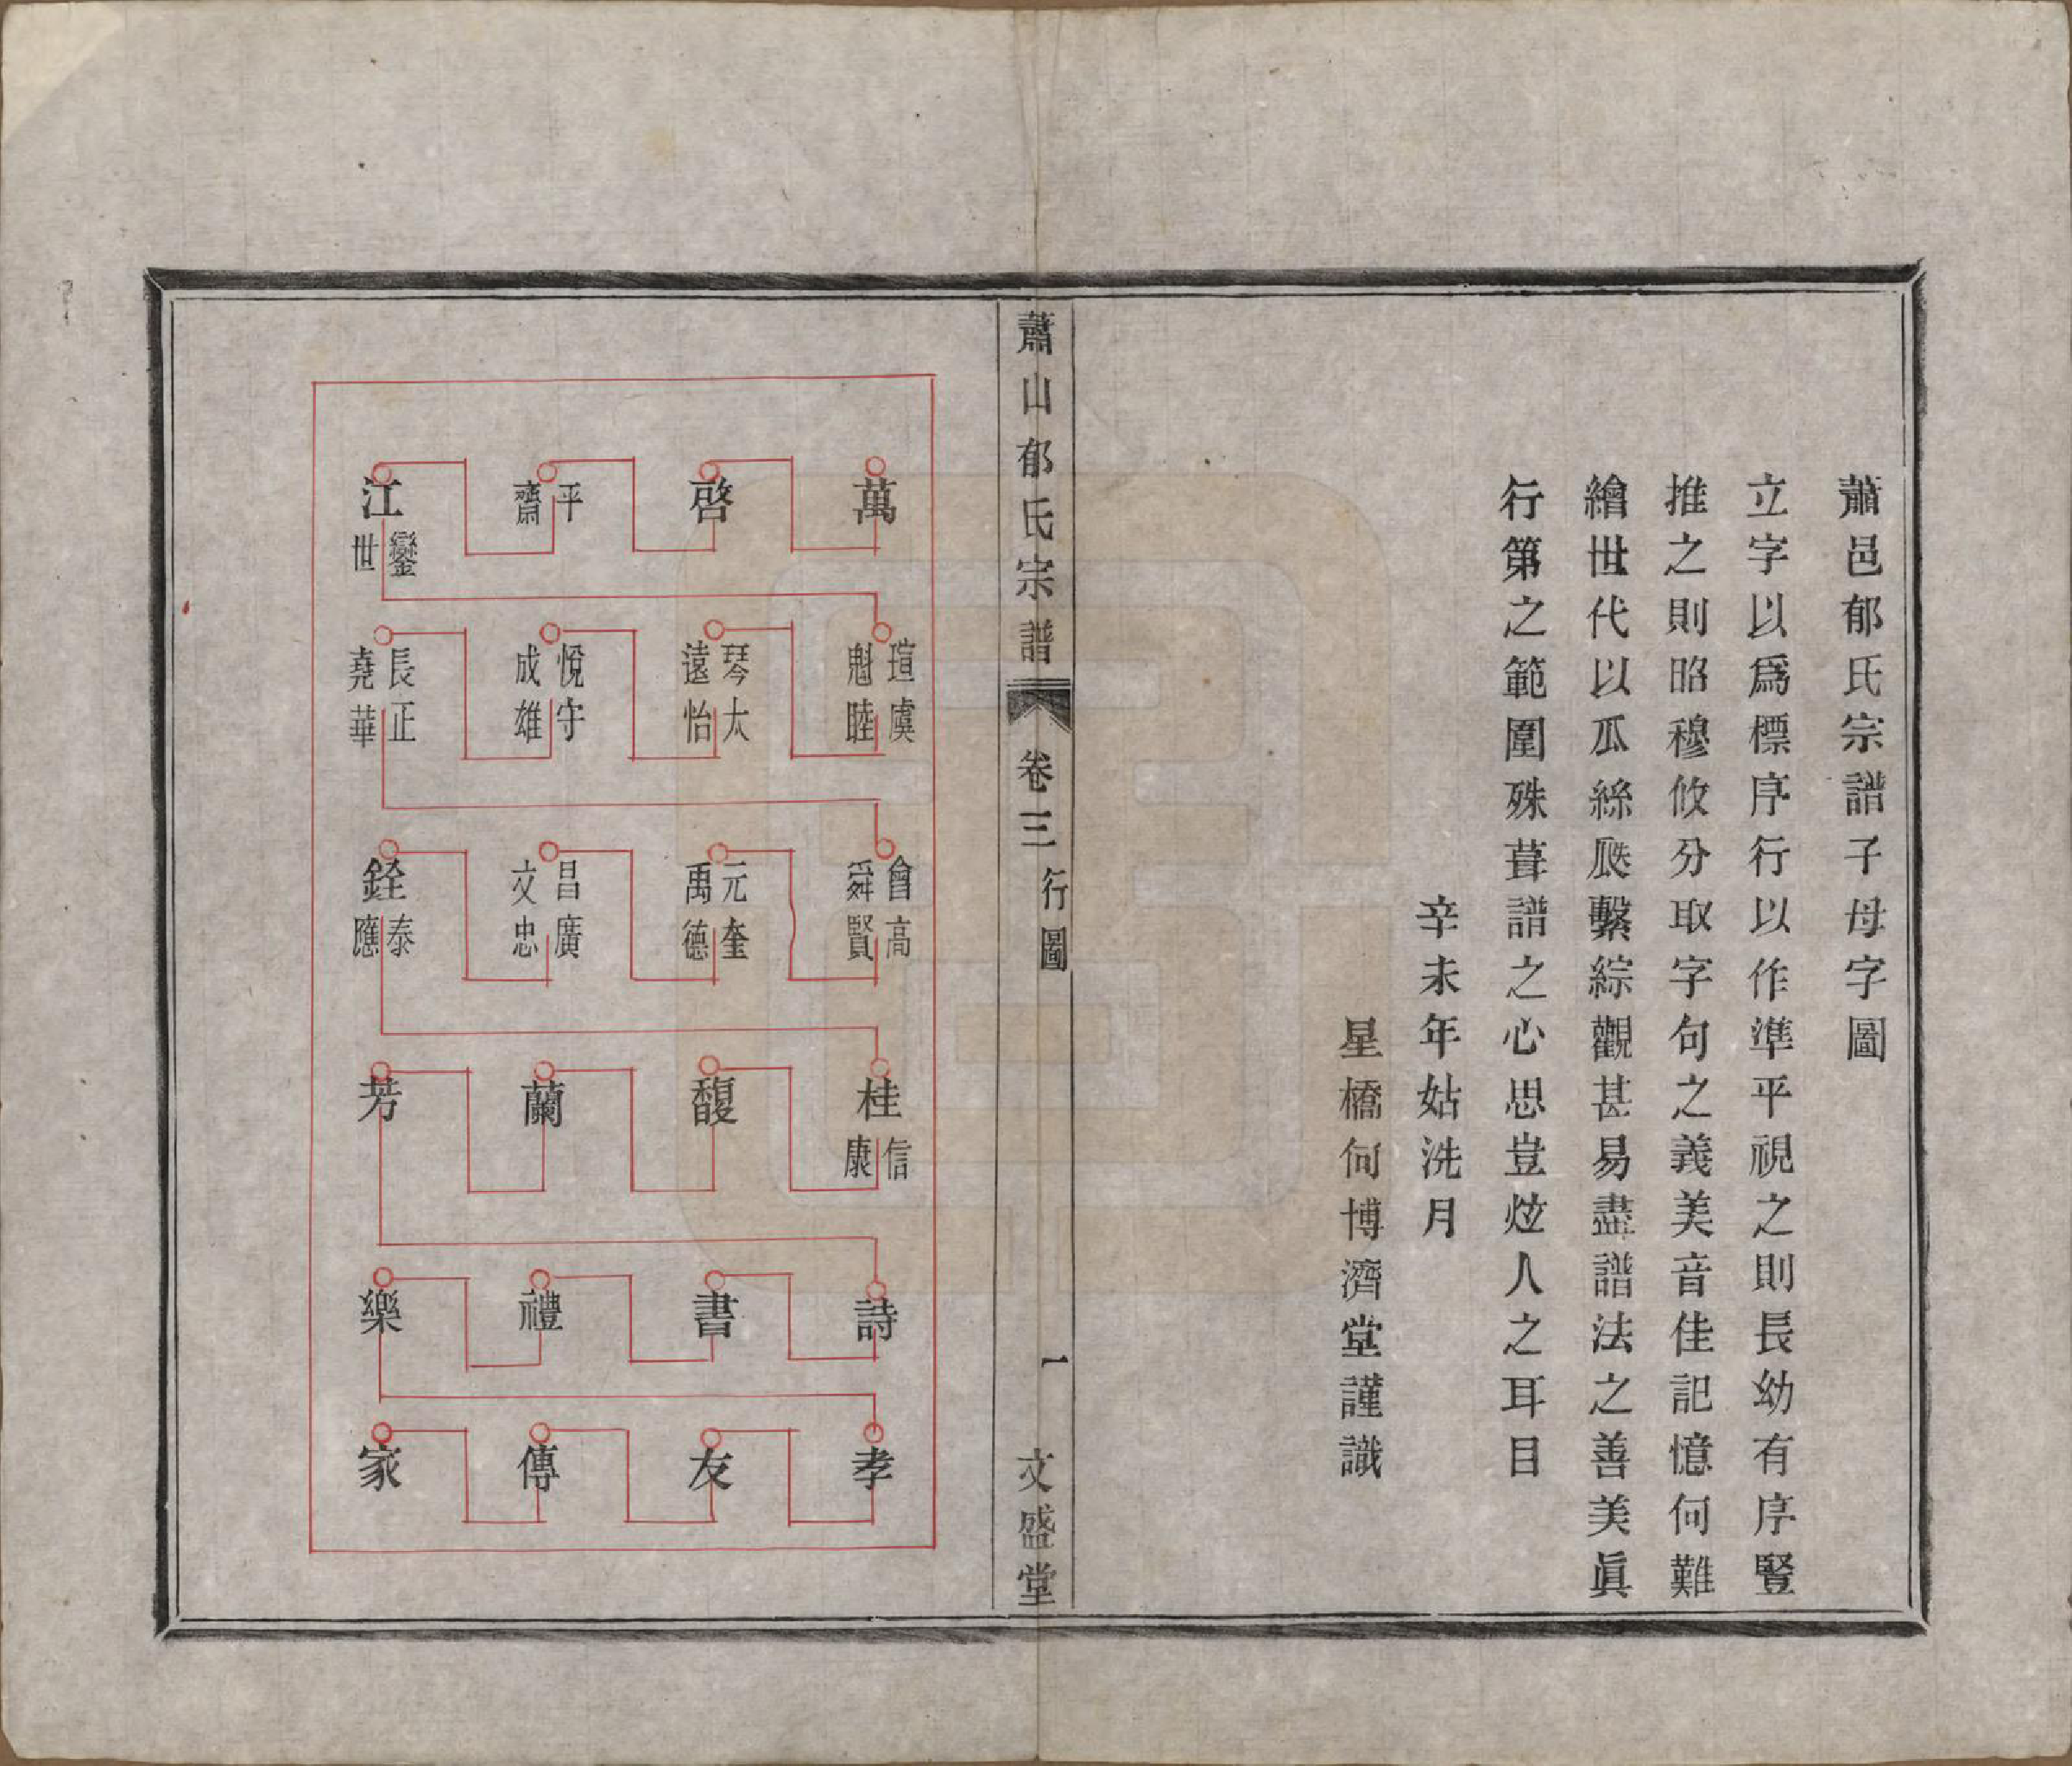 蕭邑郁氏宗譜子母字圖
立字以爲標序行以作準平視之則長幼有序豎
推之則昭穆攸分取字句之義美音佳記憶何難
繪世代以瓜絲瓞繫綜觀甚易盡譜法之善美眞
行第之範圍殊葺譜之心思豈炫人之耳目
辛未年姑洗月
星橋何博濟堂謹識
蕭山郁氏宗譜 卷三 行圖 一 文盛堂
萬 啓 平齋 江鑾世
瑄虞魁睦 琴太遠怡 悅守成雄 長正堯華
會高舜賢 元奎禹德 昌廣文忠 銓泰應
桂信康 馥 蘭 芳
詩 書 禮 樂
孝 友 傳 家